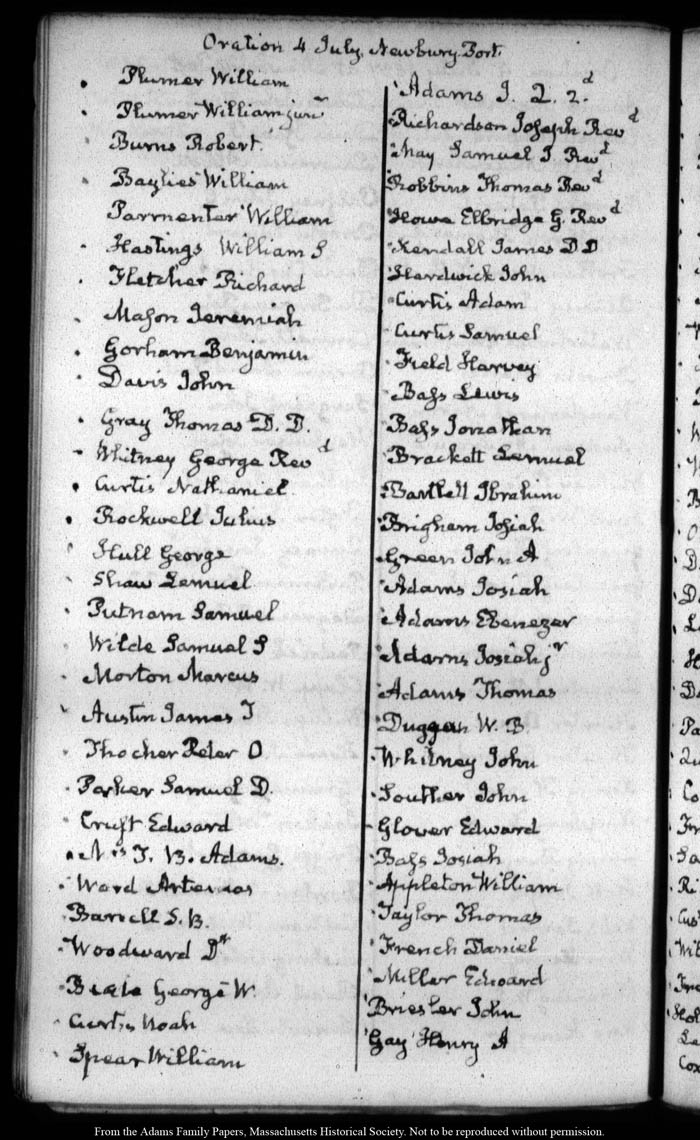 Oration 4 July, Newbury Port.
Plumer William
Plumer William junr
Burns Robert
Baylies William
Parmenter William
Hastings William S
Fletcher Richard
Mason Jeremiah
Gorham Benjamin
Davis John
Gray Thomas D. D.
Whitney George Revd
Curtis Nathaniel
Rockwell Julius
Hull George
Shaw Lemuel
Putnam Samuel
Wilde Samuel S
Morton Marcus
Austin James T
Thacher Peter O
Parker Samuel D.
Cruft Edward
Mrs T. B. Adams.
Ward Artemas
Barrell S. B.
Woodward Dr
Beale George W.
Curtis Noah
Spear William
Adams I. 2. 2.d
Richardson Joseph Revd
May Samuel J. Revd
Robbins Thomas Revd
Howe Elbridge G. Revd
Kendall James D D
Hardwick John
Curtis Adam
Curtis Samuel
Field Harvey
Bass Lewis
Bass Jonathan
Brackett Lemuel
Bartlett Ibrahim
Brigham Josiah
Green John A
Adams Josiah
Adams Ebenezer
Adams Josiah jr
Adams Thomas
Duggan W. B.
Whitney John
Souther John
Glover Edward
Bass Josiah
Appleton William
Taylor Thomas
French Daniel
Miller Edward
Briesler John
Gay Henry A
From the Adams Family Papers, Massachusetts Historical Society. Not to be reproduced without permission.